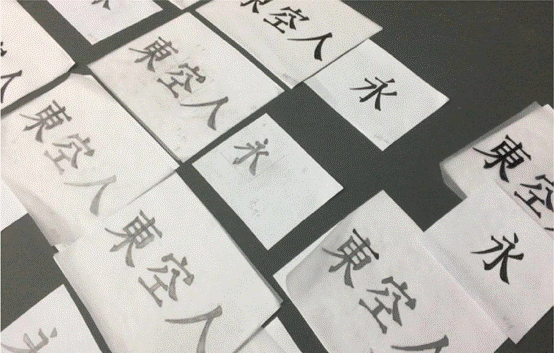 東空人
永
東空人
東空人
永
東空人
永
東空人
東空
永